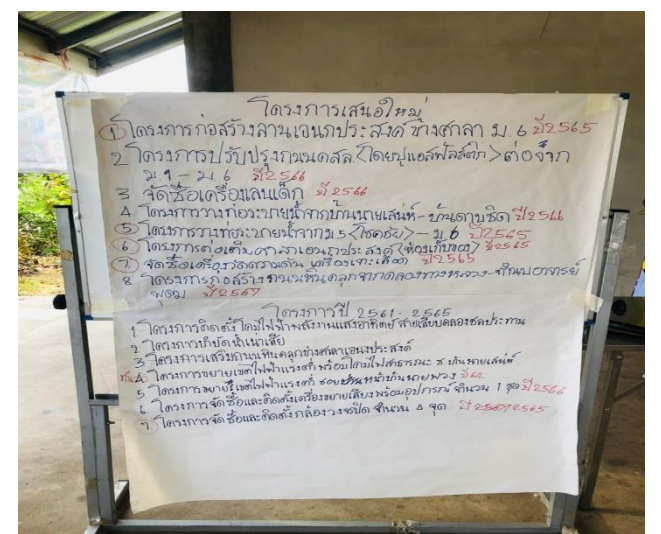 โครงการเสนอใหม่
1 โครงการก่อสร้างลานเอนกประสงค์ ข้างศาลา ม.6 ปี2565
2 โครงการปรับปรุงถนนคสล <โดยปูแอสฟัลส์ติก> ต่อจาก
ม.9 - ม.6 ปี2566
3 จัดซื้อเครื่องเล่นเด็ก ปี2566
4. โครงการวางท่อระบายน้ำจากบ้านนายเสน่ห์ - บ้านดาบชิต ปี2566
5 โครงการวางท่อระบายน้ำจากม.5 <โชคชัย> - ม.6 ปี2565
6 โครงการต่อเติมศาลาเอนกประสงค์ <ห้องเก็บของ> ปี2565
7 จัดซื้อเครื่องวัดความดัน เครื่องเจาะเลือด ปี2565
8 โครงการก่อสร้างถนนหินคลุกจากคลองทางหลวง - บ้านอาจารย์
ปี2567
โครงการปี 2561 - 2565
1 โครงการติดตั้งโคมไฟฟ้าพลังงานแสงอาทิตย์ สายเลียบคลองชลประทาน
2 โครงการบำบัดน้ำเน่าเสีย
3 โครงการเสริมถนนหินคลุกข้างศาลาเอนกประสงค์
4 โครงการขยายเขตไฟฟ้าแรงต่ำ พร้อมโคมไฟสาธารณะ บ้านนายเสน่ห์
5 โครงการขยายเขตไฟฟ้าแรงต่ำ ซอยบ้านนายพวง
6 โครงการจัดซื้อและติดตั้งเครื่องขยายเสียงพร้อมอุปกรณ์ จำนวน 1 ชุด ปี2566
7 โครงการจัดซื้อและติดตั้งกล้องวงจรปิด จำนวน 4 จุด 2565